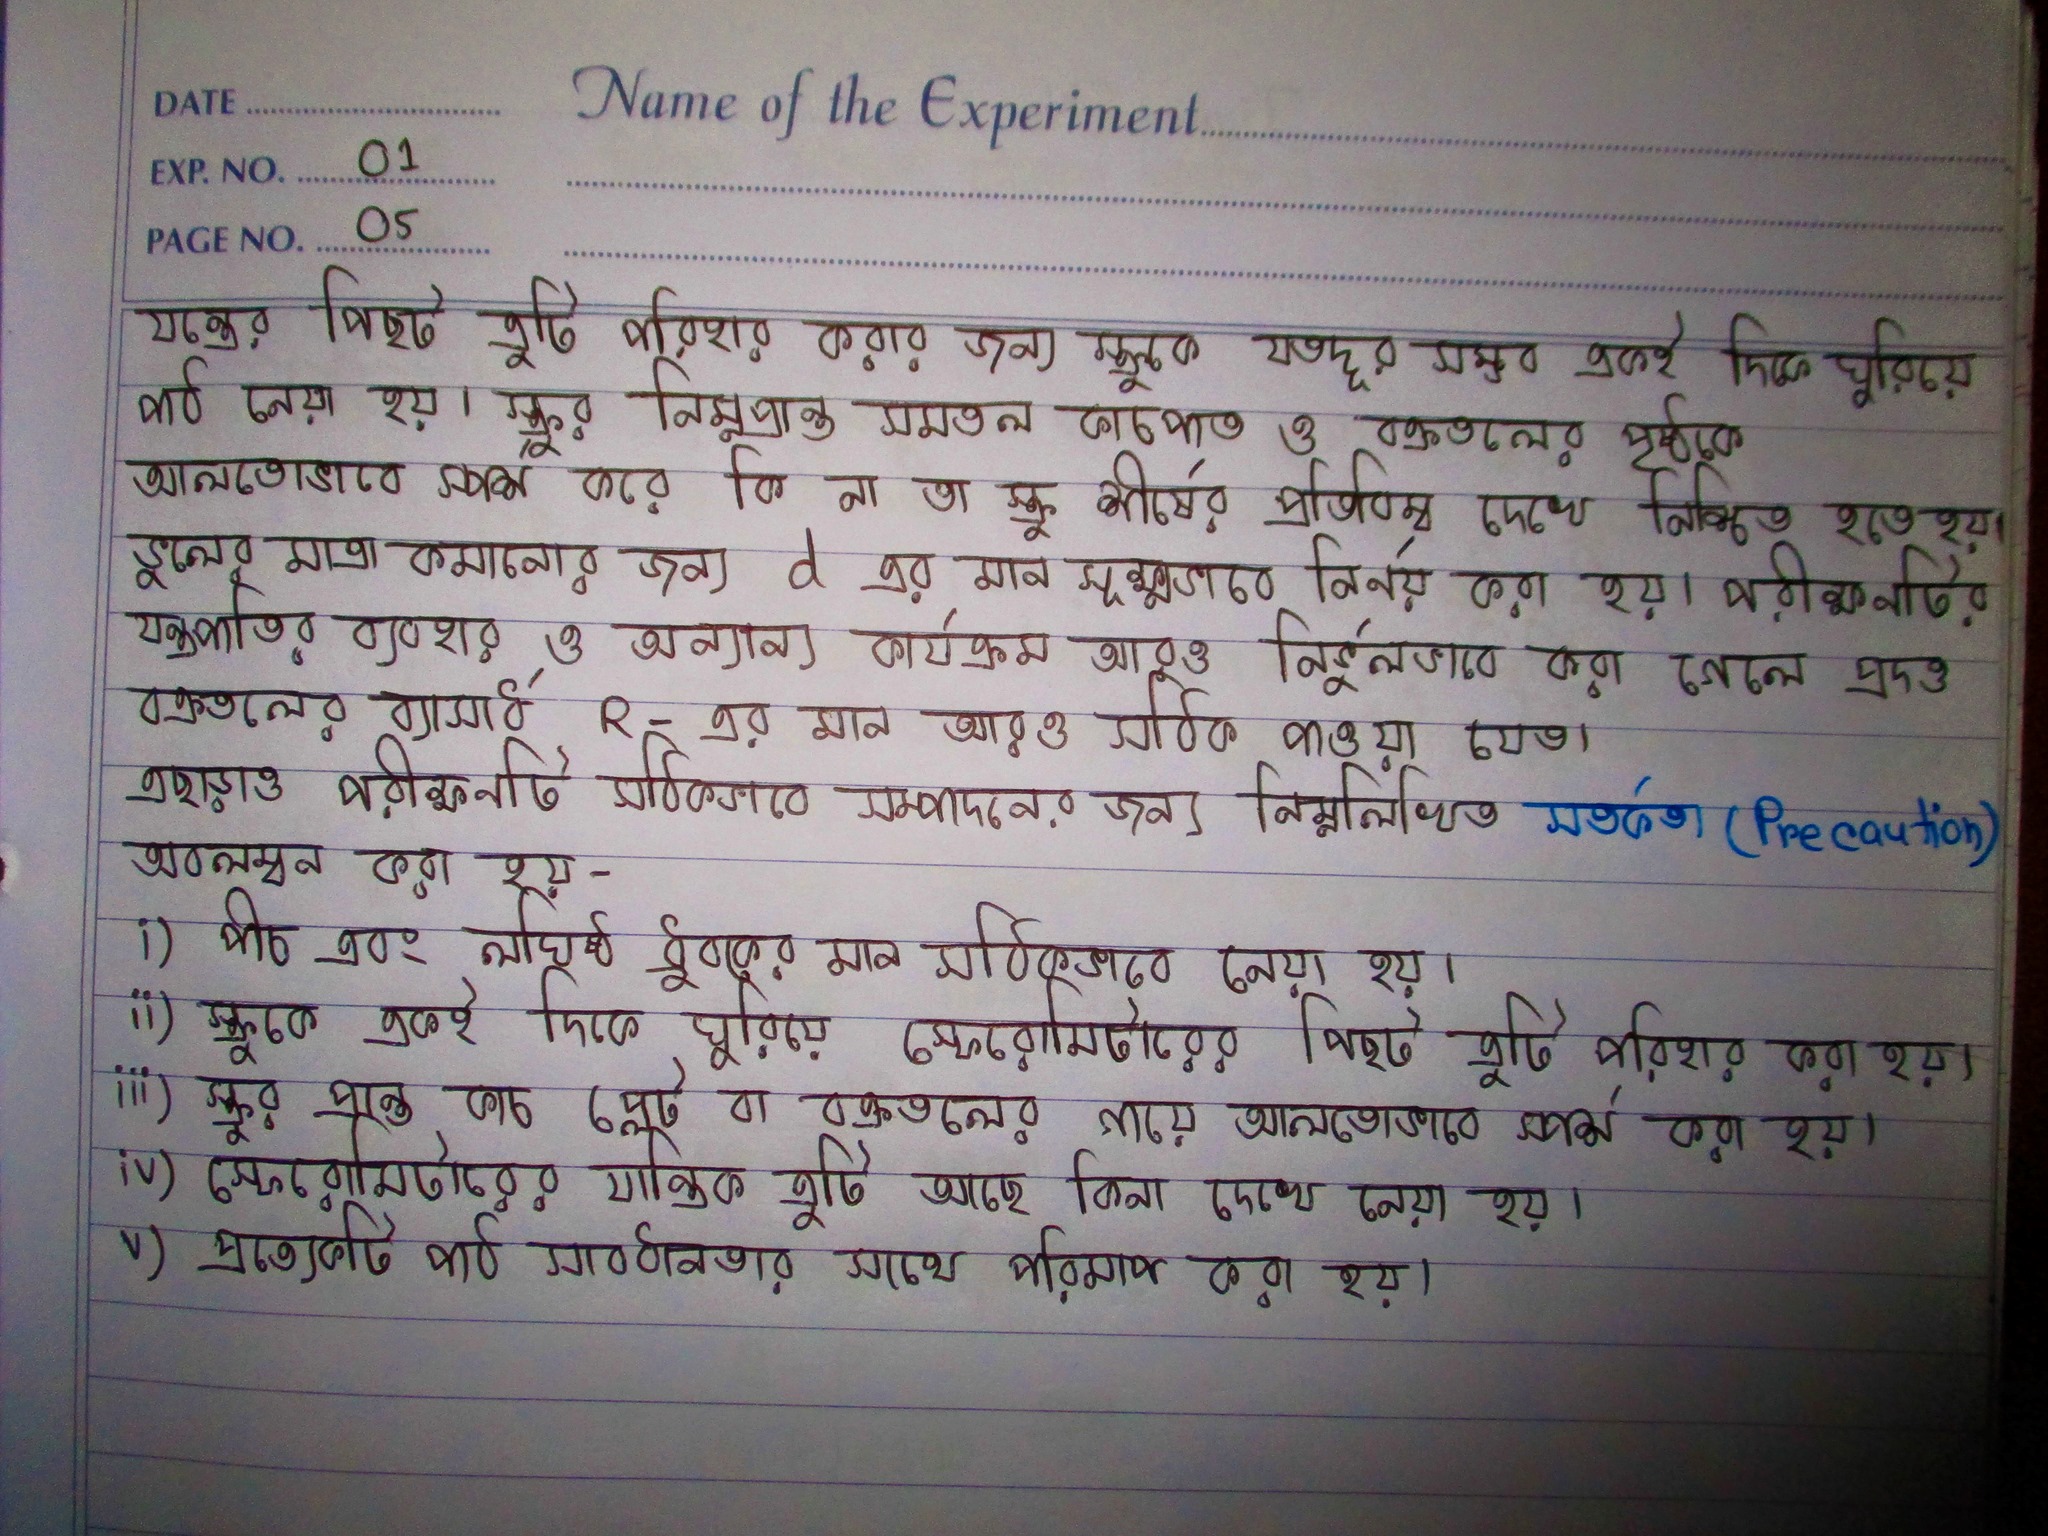 DATE
Name of the Experiment
EXP. NO. 01
PAGE NO. 05
যন্ত্রের পিছট ত্রুটি পরিহার করার জন্য স্ক্রুকে যতদূর সম্ভব একই দিকে ঘুরিয়ে
পাঠ নেয়া হয়। স্ক্রুর নিম্নপ্রান্ত সমতল কাচপাত ও বক্রতলের পৃষ্ঠকে
আলতোভাবে স্পর্শ করে কি না তা স্ক্রু শীর্ষের প্রতিবিম্ব দেখে নিশ্চিত হতে হয়।
ভুলের মাত্রা কমানোর জন্য d এর মান সূক্ষ্মভাবে নির্ণয় করা হয়। পরীক্ষনটির
যন্ত্রপাতির ব্যবহার ও অন্যান্য কার্যক্রম আরও নির্ভুলভাবে করা গেলে প্রদত্ত
বক্রতলের ব্যাসার্ধ R- এর মান আরও সঠিক পাওয়া যেত।
এছাড়াও পরীক্ষনটি সঠিকভাবে সম্পাদনের জন্য নিম্নলিখিত সতর্কতা (Precaution)
অবলম্বন করা হয়-
i) পীচ এবং লঘিষ্ঠ ধ্রুবকের মান সঠিকভাবে নেয়া হয়।
ii) স্ক্রুকে একই দিকে ঘুরিয়ে স্ফেরোমিটারের পিছট ত্রুটি পরিহার করা হয়।
iii) স্ক্রুর প্রান্ত কাচ প্লেট বা বক্রতলের গায়ে আলতোভাবে স্পর্শ করা হয়।
iv) স্ফেরোমিটারের যান্ত্রিক ত্রুটি আছে কিনা দেখে নেয়া হয়।
v) প্রত্যেকটি পাঠ সাবধানতার সাথে পরিমাপ করা হয়।